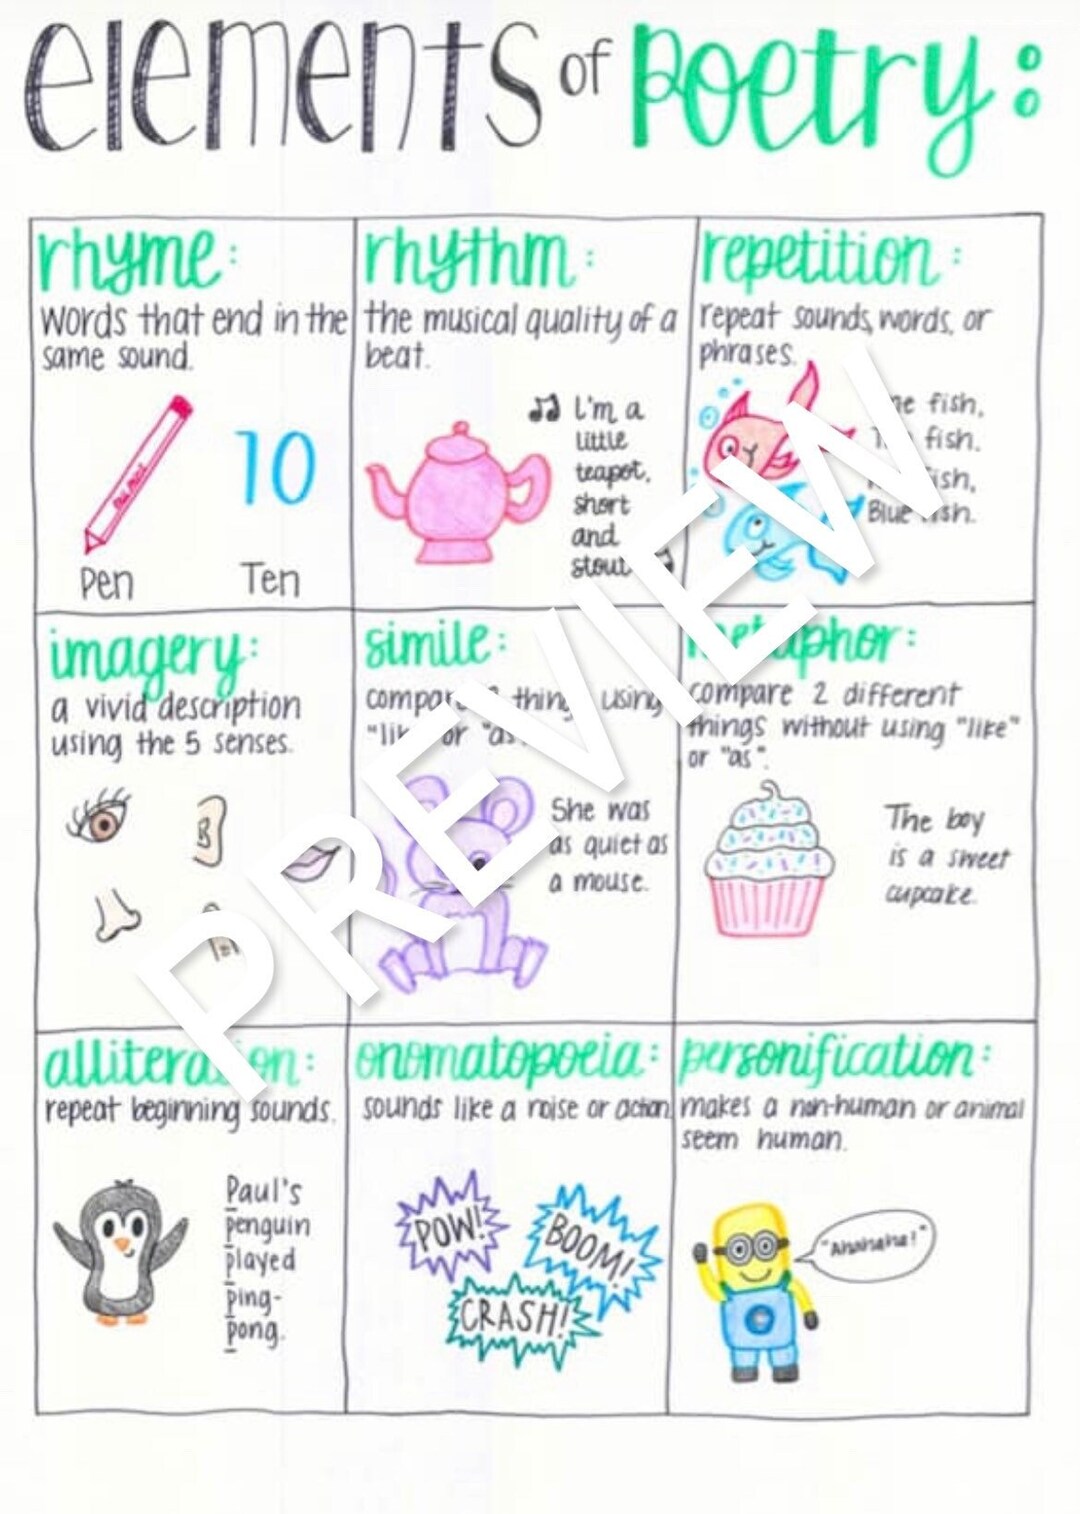 elements of poetry:
rhyme:
words that end in the
same sound.
Pen
10
Ten
rhythm:
the musical quality of a
beat.
I'm a
little
teapot,
short
and
stout
repetition:
repeat sounds, words, or
phrases.
fish,
fish.
fish,
Blue fish.
imagery:
a vivid description
using the 5 senses.
simile:
compare 2 things using
"like" or "as".
She was
as quiet as
a mouse.
metaphor:
compare 2 different
things without using "like"
or "as".
The boy
is a sweet
cupcake.
alliteration:
repeat beginning sounds.
Paul's
penguin
played
ping-
pong.
onomatopoeia:
sounds like a noise or action
POW!
BOOM!
CRASH!
personification:
makes a non-human or animal
seem human.
"Ahahaha!"
PREVIEW